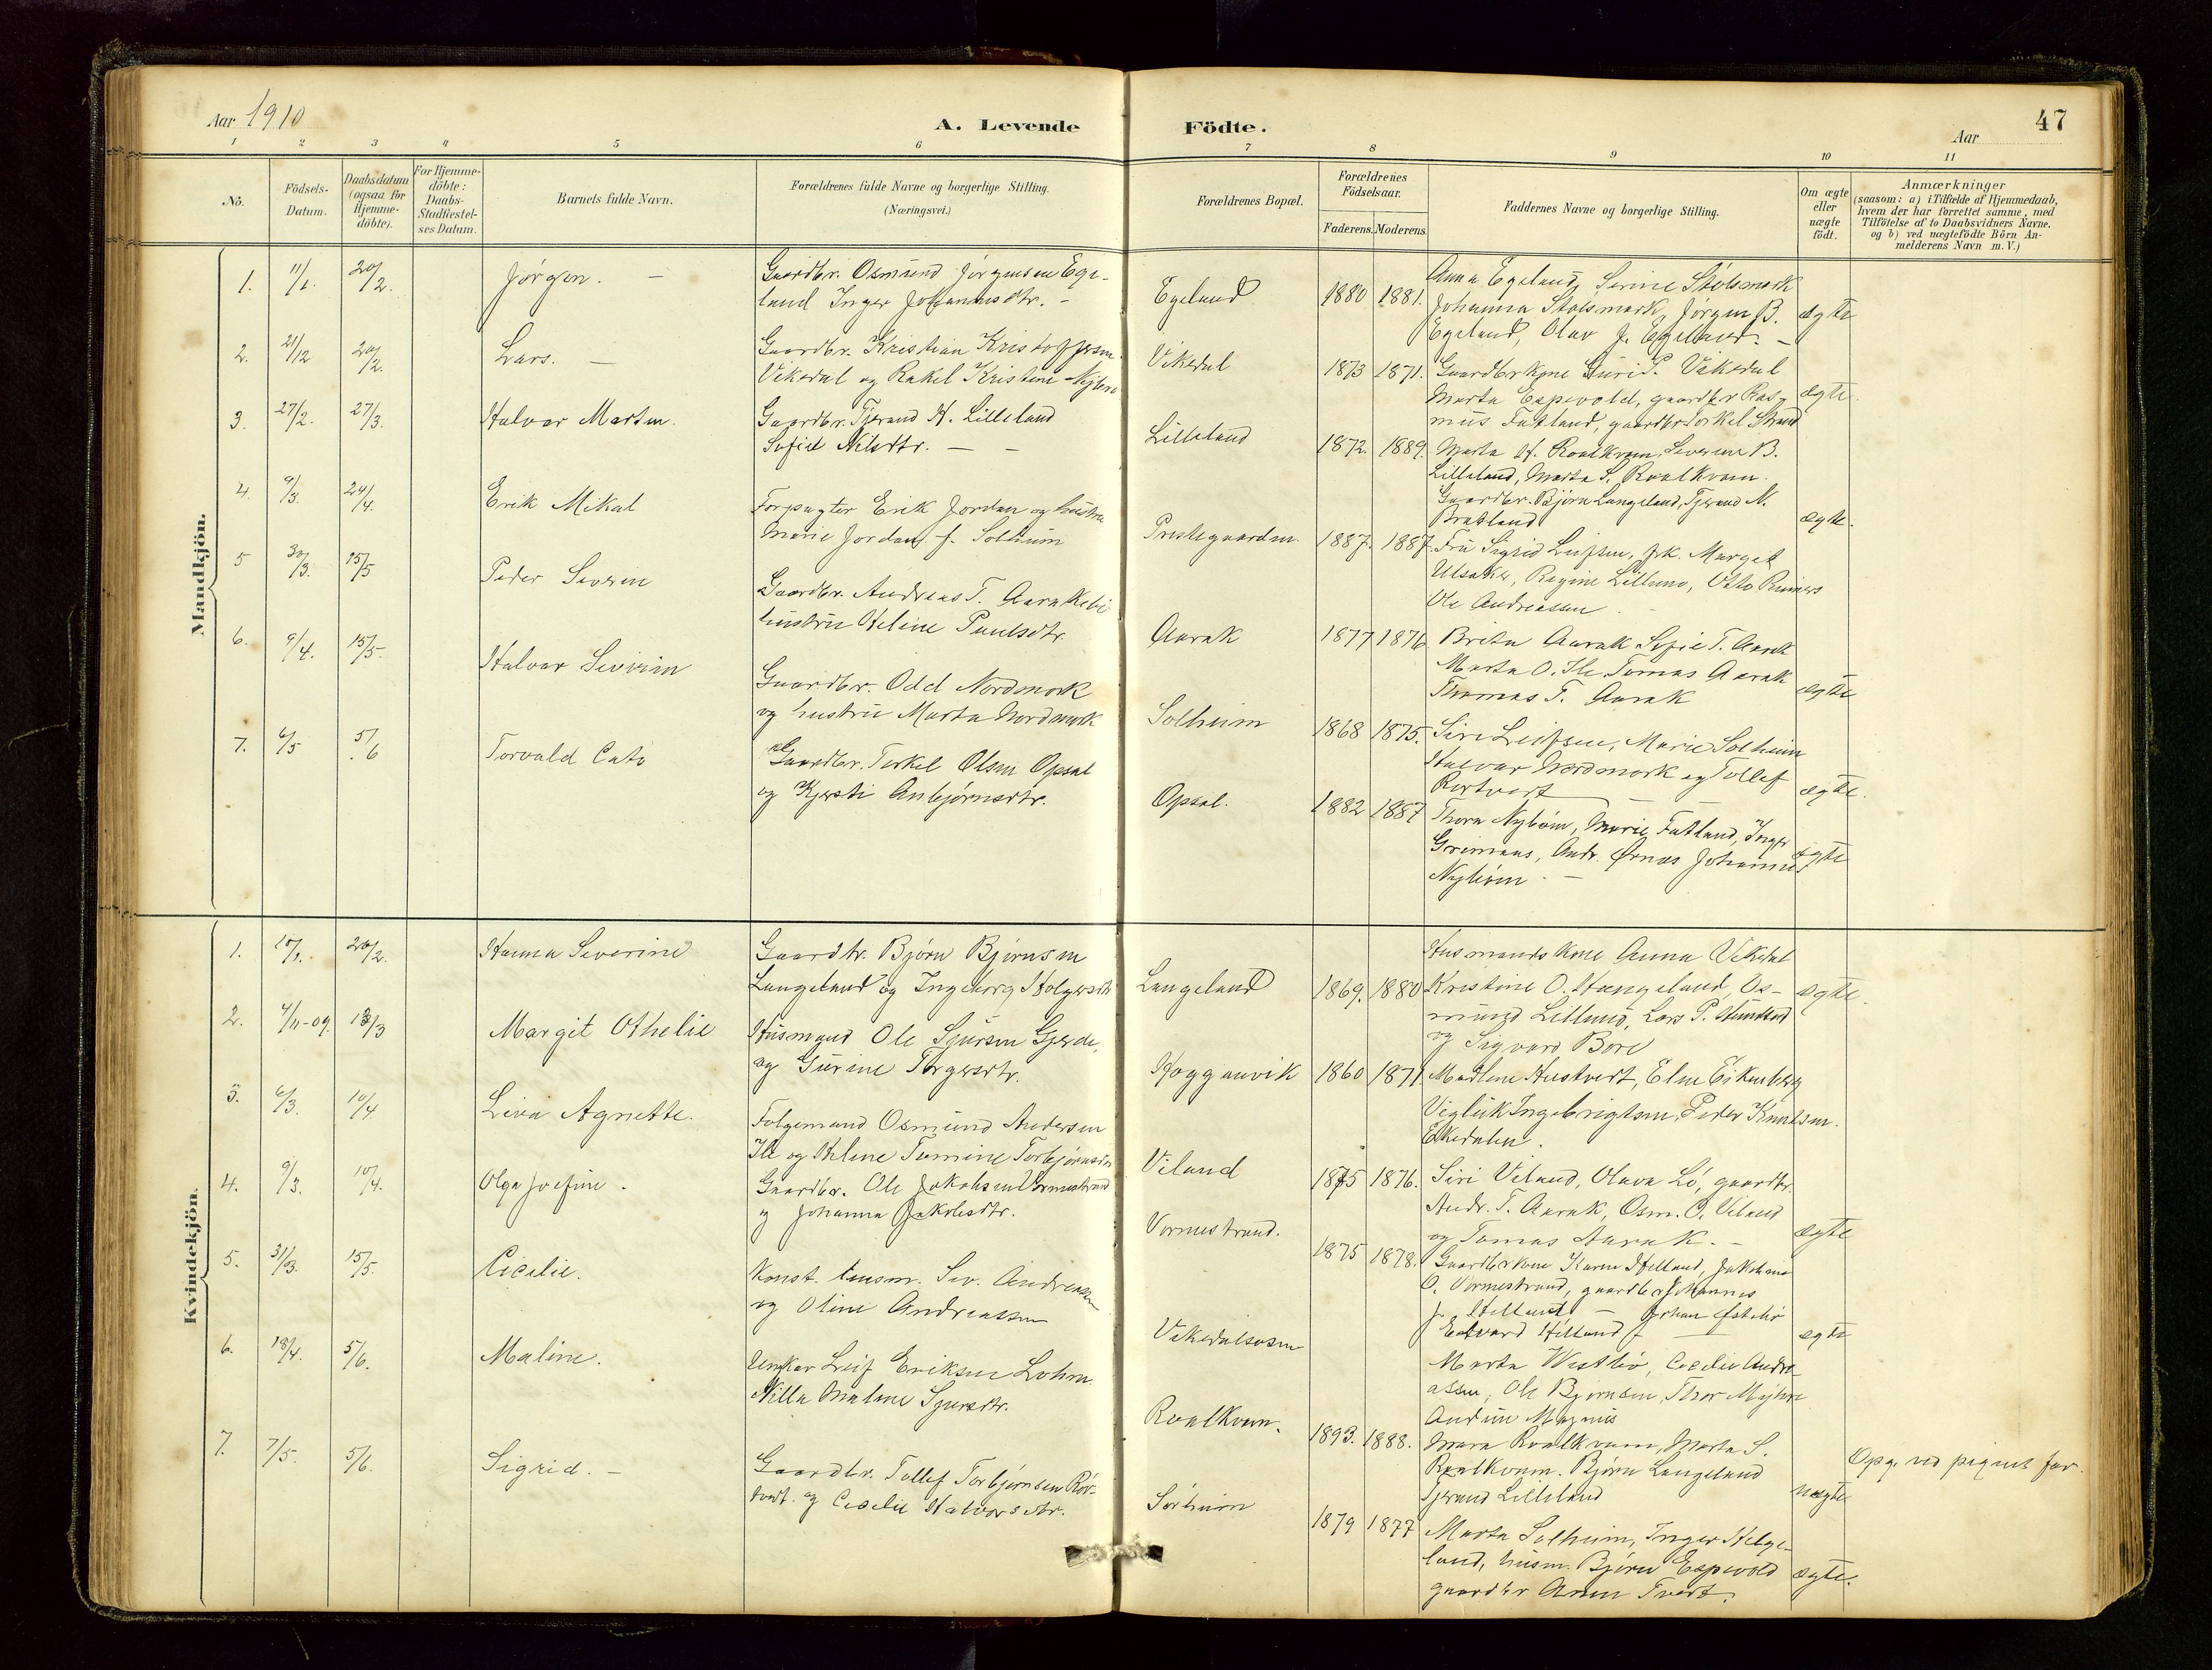 Aar 1910
A. Levende Födte.
Aar
47
1 2 3 4 5 6 7 8 9 10 11
Nô.
Födsels-
Datum.
Daabsdatum
(ogsaa for
Hjemme-
döbte).
For Hjemme-
döbte:
Daabs-
Stadfæstel-
ses Datum.
Barnets fulde Navn.
Forældrenes fulde Navne og borgerlige Stilling.
(Næringsvei.)
Forældrenes Bopæl.
Forældrenes
Födselsaar.
Faderens. Moderens.
Faddernes Navne og borgerlige Stilling.
Om ægte
eller
uægte
födt.
Anmærkninger
(saasom: a) i Tilfælde af Hjemmedaab,
hvem der har forrettet samme, med
Tilföielse af to Daabsvidners Navne.
og b) ved uægtefödte Börn An-
melderens Navn m.V.)
Mandkjön.
1. 11/1. 20/2. Jørgen. -
Gaardbr. Osmund Jørgensen Ege-
land Inger Johannesdtr. -
Egeland
1880 1881.
Anna Egeland, Serine Stølsmark
Johanna Stølsmark, Jørgen B.
Egeland, Olav J. Egeland. -
ægte
2. 21/12 20/2. Lars. -
Gaardbr. Kristian Kristoffersen
Vikedal og Rakel Kristine
Vikedal
1873 1871.
Gaardbrkone Guri P. Vikedal
Marta Espevold, gaardbr Ras-
mus Fatland, gaardbr Torkel Strand
ægte.
3. 27/2. 27/3. Halvor Martin.
Gaardbr. Tjerand H. Lilleland
Sofie Nilsdtr. - -
Lilleland
1872. 1889.
Marta H. Roalkvam, Severine B.
Lilleland, Marta S. Roalkvam
Gaardbr. Bjørn Langeland, Tjerand N.
Bratland
ægte.
4. 9/3. 24/4. Erik Mikal
Forpagter Erik Jordan og hustru
Marie Jordan f. Solheim
Prestegaarden
1887. 1887.
Fru Sigrid Leifsen, frk. Marget
Ulsaker, Regine Lillunn, Otto Reimers
Ole Andreassen
5 30/3. 15/5 Peder Severin
Gaardbr. Andreas T. Aarak
hustru Heline Paulsdtr.
Aarak
1877 1876
Brita Aarak Sofie T. Aarak
Marta O. Ile Tomas Aarak
Thomas T. Aarak
ægte
6. 9/4. 15/5. Halvor Severin
Gaardbr. Odd Nordmork
og hustru Marta Nordmork
Solheim
1868 1875.
Siri Leifsen, Marie Solheim
Halvar Nordmork og Tollef
Rørtvert
ægte.
7. 6/5 5/6 Torvald Cato
Gaardbr. Torkel Olsen Opsal
og Kjersti Anbjørnsdtr.
Opsal.
1882 1887
Thora Nybøm, Marie Fatland, Inger
Grimaas, Andr. Ørnes Johannes
Nybøm. -
ægte
Kvindekjön.
1. 10/1. 20/2. Hanna Severine
Gaardbr. Bjørn Bjørnsen
Langeland og Ingeborg Holgersdtr
Langeland
1869. 1880
Husmandskone Anna Vikedal
Kristine O. Haugeland, Os-
mund Lillund, Lars P.
og Sigvard Bore
ægte.
2. 4/11-09. 13/3 Margit Othelie
Husmand Ole Sjursen Gjerde,
og Gurine Torgersdtr.
Hogganvik
1860 1871
Madlene Hustvedt, Elen Eikenberg
Vigleik Ingebrigtsen, Peder Knutsen.
Ekedalen.
3. 6/3. 10/4. Liva Agnette.
Folgemand Osmund Andersen
Ile og Helene Tomine Torbjørnsdtr
Viland
1875 1876.
Siri Viland, Olava Lø, gaardbr.
Andr. T. Aarak, Osm. O. Viland
og Tomas Aarak. -
ægte
4. 9/3. 10/4. Olga Josefine.
Gaardbr. Ole Jakobsen Vormestrand
og Johanna Jakobsdtr.
Vormestrand.
1875 1878.
Gaardbrkone Karen Helland, Jakobine
O. Vormestrand, gaardbr Johannes
J. Helland - Johan Østebø
Edvard Helland J.
ægte
5. 31/3. 15/5. Cicilie.
Konst. lensm. Sev. Andreassen
og Oline Andreassen
Vikedalsosen
Marta Westbø, Cecilie Andre-
assen, Ole Bjørnsen, Thor Myhre
Audun Magnus
6. 18/4. 5/6. Maline.
Ungkar Leif Eriksen Lohm
Nilla Malene Sjursdtr.
Roalkvam.
1893. 1888.
Mara Roalkvam, Marta S.
Roalkvam. Bjørn Langeland
Tjerand Lilleland
uægte
Opg. ved pigens far.
7. 7/5. 5/6. Sigrid. -
Gaardbr. Tollef Torbjørnsen Rør-
tvedt og Cecilie Halvorsdtr.
Sørheim
1879 1877
Marta Solheim, Inger Helge-
land, husm. Bjørn Espevold
gaardbr Tvedt.
ægte.